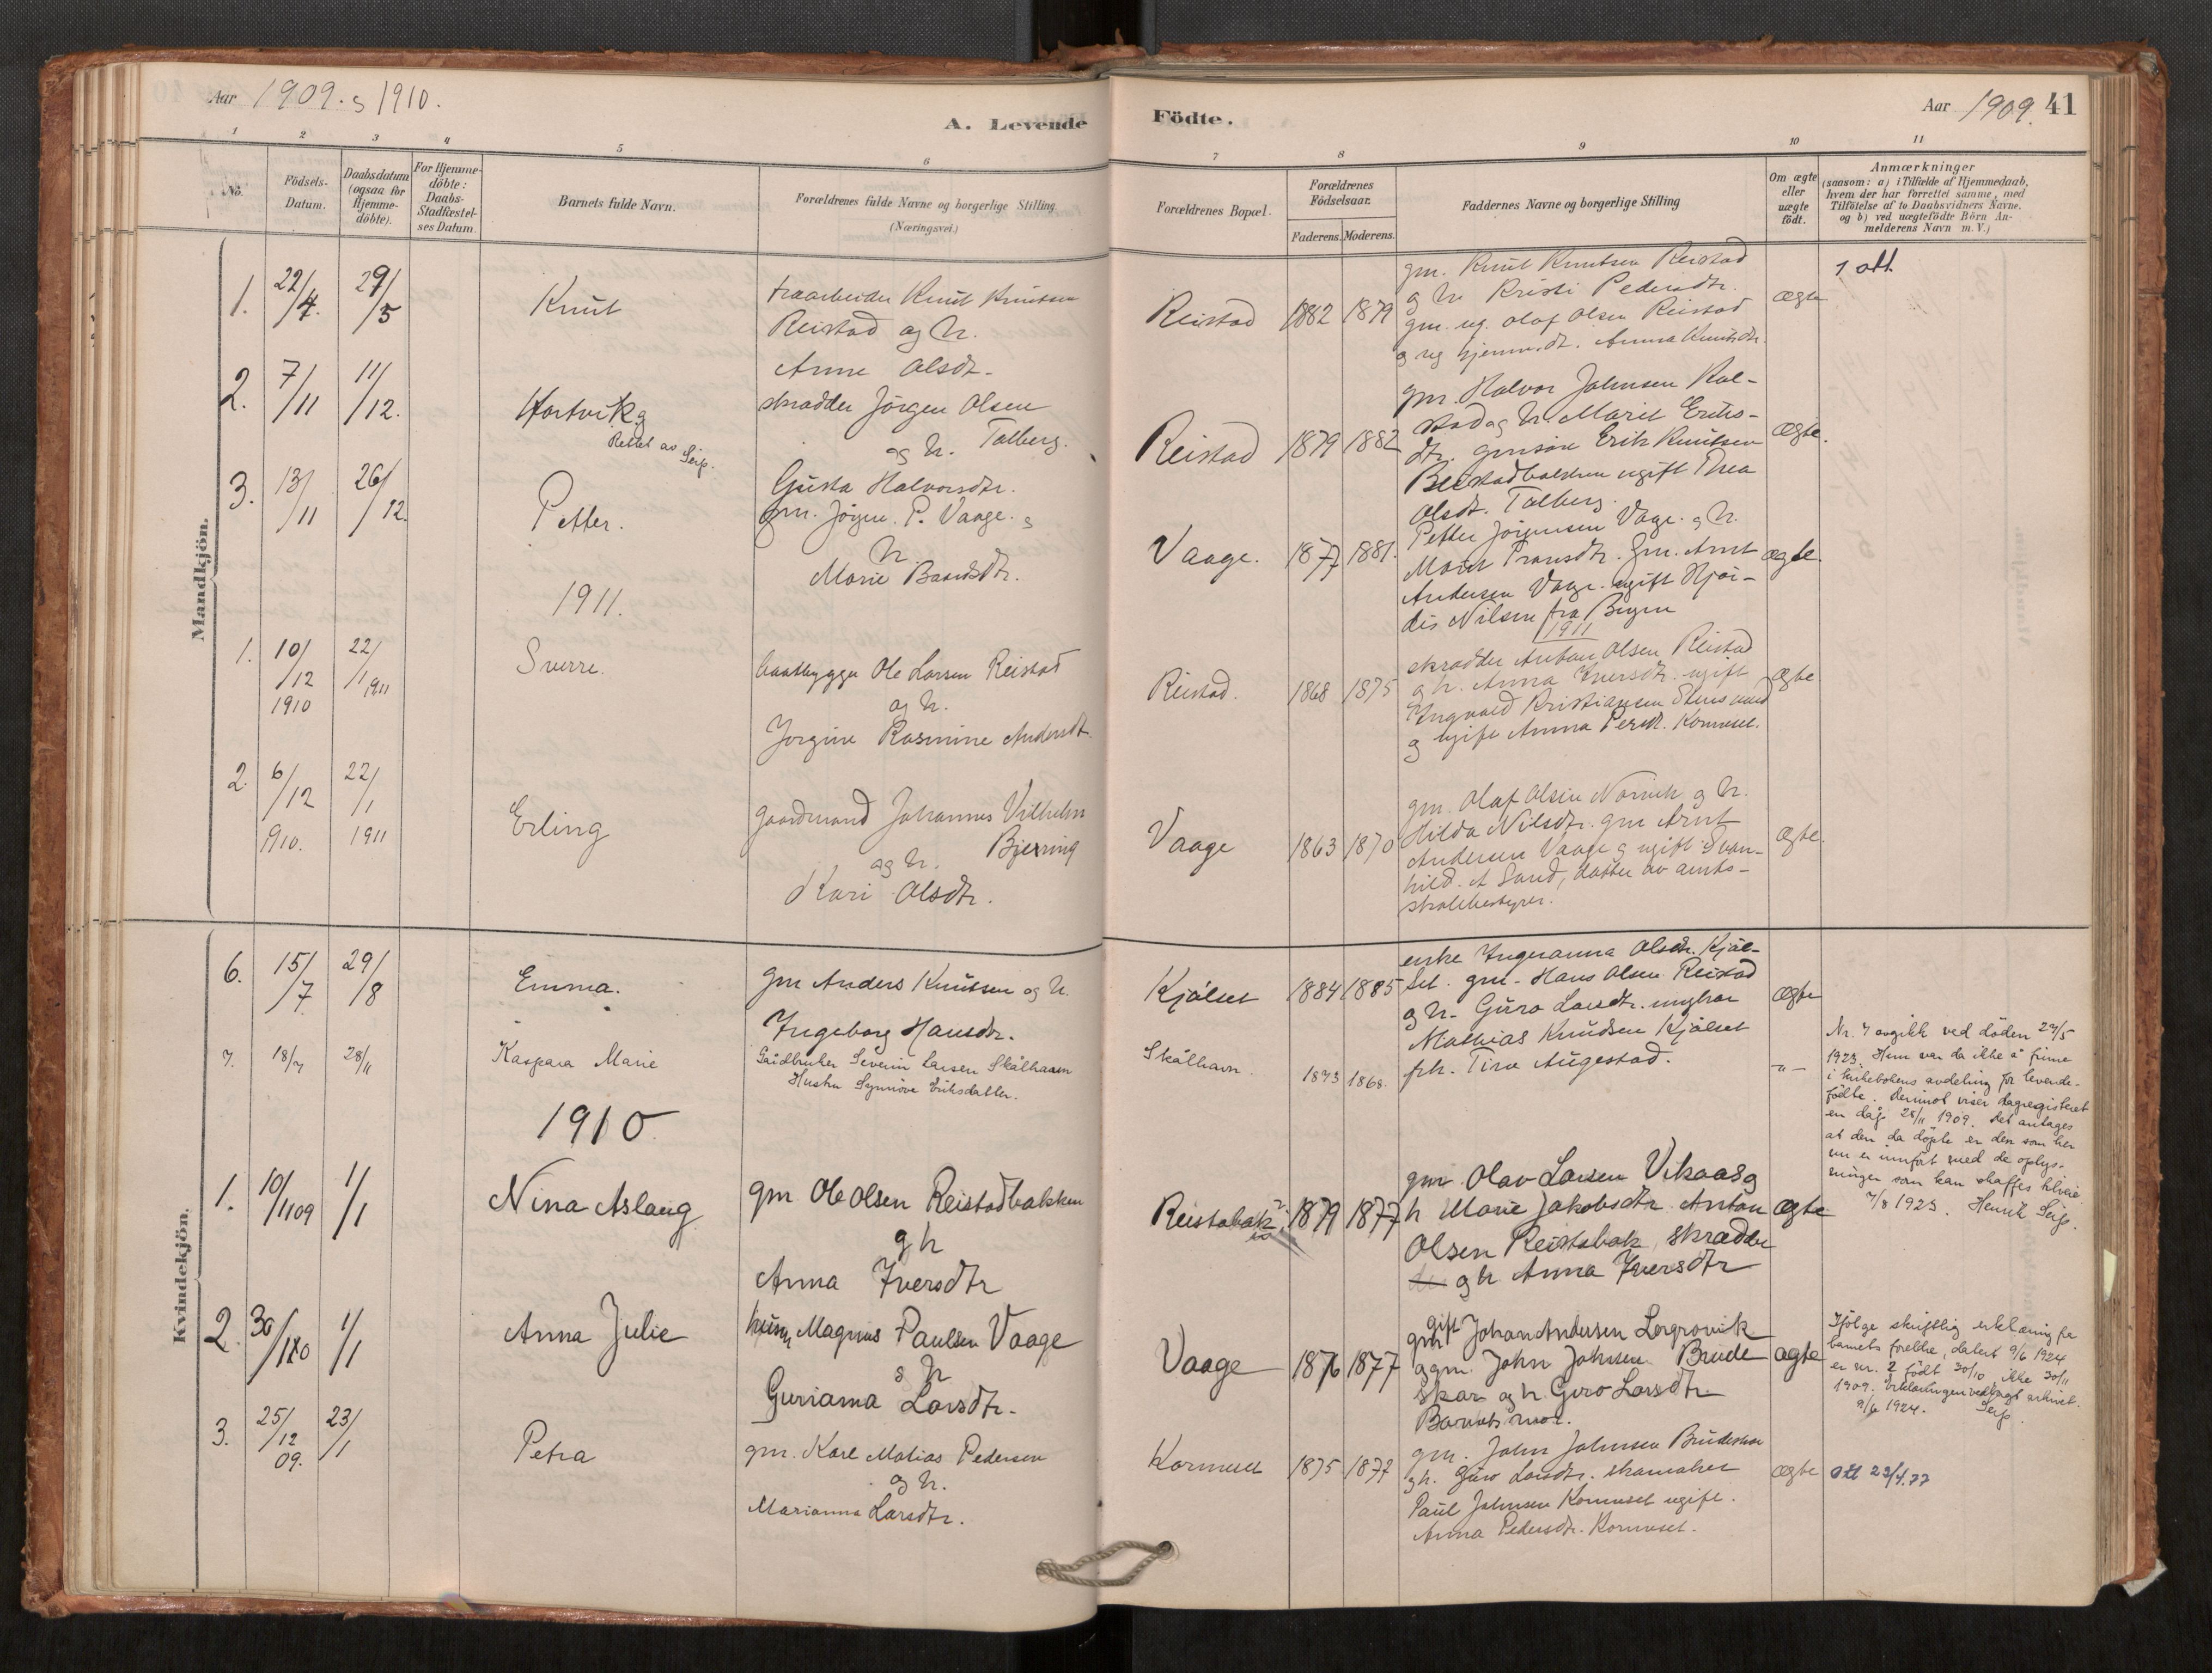 Aar 1909. g 1910.
A. Levende
Födte.
Aar 1909. 41
1 2 3 4 5 6 7 8 9 10 11
No.
Födsels-
Datum.
Daabsdatum
(ogsaa for
Hjemme-
döbte).
For Hjemme-
döbte:
Daabs-
Stadfæstel-
ses Datum.
Barnets fulde Navn.
Forældrenes fulde Navne og borgerlige Stilling
(Næringsvei.)
Forældrenes Bopæl.
Forældrenes
Födselsaar.
Faderens. Moderens.
Faddernes Navne og borgerlige Stilling
Om ægte
eller
uægte
födt.
Anmærkninger
(saasom: a) i Tilfælde af Hjemmedaab,
hvem der har forrettet samme, med
Tilföielse af to Daabsvidners Navne.
og b) ved uægtefödte Börn An-
melderens Navn m.V.)
Mandkjön.
1. 22/4. 29/5 Knut
Knut Knutsen
Reistad og h.
Anne Olsdt.
Reistad 1882 1879
gm. Knut Knutsen Reistad
g h Kristi Pedersdtr.
gm. ug. Olaf Olsen Reistad
g ug hjemv. dt. Anna Knutsdtr.
ægte
1 att
2. 7/11 11/12. Hartvikg
Rettet av Seip.
skrædder Jörgen Olsen
og h. Talberg.
Gusta Halvorsdtr.
Reistad 1879 1882
gm. Halvor Johnsen Rei-
stad og h. Marit Eriks-
dtr. gmsön Erik Knutsen
Reistadbakken ugift Thea
Olsdt. Talberg.
ægte.
3. 13/11 26/12. Petter.
gm. Jörgen P. Vaage. g
h.
Marie Baardsdtr.
Vaage. 1877 1881.
Petter Jörgensen Vage. g h.
Marit Transdtr. gm. Arnt
Andersen Vage. ugift Hjör-
dis Nilsen fra Bergen
ægte.
1911.
1911
1. 10/12 1910 22/1 1911 Sverre.
baatbygger Ole Larsen Reistad
og h.
Jorgine Rasmine Andersdt.
Reistad. 1868 1875
skrædder Anton Olsen Reistad
g h. Anna Iversdtr. ugift
Ingvald Kristiansen
g ugift Anna Persdt. Kornvset.
ægte
2. 6/12 910. 22/1 1911 Erling
gaardmand Johannes Vilhelm
Bjerring
og h.
Kari Olsdtr.
Vaage 1863 1870
gm. Olaf Olsen Norvik g h.
Hilda Nilsdtr. gm Arnt
Andersen Vaage g ugift Svan-
hild. A Sand, datter av amts-
skolebestyrer.
ægte.
Kvindekjön.
6. 15/7 29/8 Emma.
gm Anders Knutsen og h.
Ingeborg Hansdtr.
Kjölset 1884 1885
enke Ingeranna Olsdtr. Kjöl-
set. gm. Hans Olsen Reistad
g h. Guro Larsdtr. ungkar
Mathias Knudsen Kjölset
frk. Tira Augestad.
ægte
7. 18/7 28/11 Kaspara Marie
Gaidbruker Severin Larsen Skålhavn
Hustru Synnöve Eriksdatter.
Skålhavn. 1873 1868.
-"-
Nr. 7 avgikk ved döden 29/5
1923. Hun var da ikke å finne
i kirkebokens avdeling for levende-
födte. Derimot viser dagregisteret
en dåp 28/11 1909. Det antages
at den da döpte er den som her
nu er innfört med de oplys-
ninger som kan skaffes tilveie.
7/8 1923. Henrik Seip.
1910
1. 10/11 09 1/1 Nina Aslaug
gm Ole Olsen Reistadbakken
g h
Anna Iversdtr
Reistabak 1879 1877
gm. Olav Larsen Vikaas g
h Marie Jakobsdtr. Anton
Olsen Reistabak, skrædder
g h Anna Iversdtr
ægte
2. 30/10 1/1 Anna Julie
husm Magnus Paulsen Vaage
g h
Gurianna Larsdtr.
Vaage 1876 1877
gift
gm Johan Andersen Lergrovik
g gm. John Johnsen Brude
skar og h. Guro Larsdtr
Barnets mor.
ægte
Ifölge skriftlig erklæring fra
barnets foreldre, datert 9/6 1924
er nr. 2 födt 30/10, ikke 30/11
1909. Erklæringen vedlagt arkivet.
9/6 1924. Seip.
3. 25/12 09. 23/1 Petra
gm. Karl Matias Pedersen
og h.
Marianna Larsdtr.
Kornvset 1875 1877
gm. John Johnsen Brudeskar
g h. Guro Larsdtr. skomaker
Paul Johnsen Kornvset ugift.
Anna Pedersdtr. Kornvset.
ægte
att 29/4.77